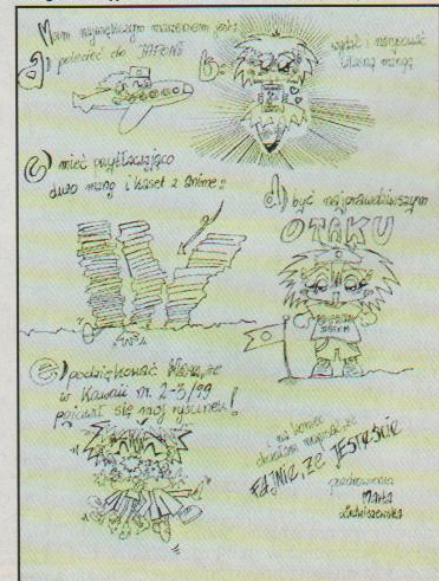 Moim największym marzeniem jest:
a) polecieć do JAPONII
b) wydać i narysować
własną mangę
c) mieć przytłaczająco
dużo mang i kaset z anime
d) być najprawdziwszym
OTAKU
e) podziękować Wam, że
w Kawaii nr. 2-3/99
pojawił się mój rysunek!
i na koniec
chciałam napisać, że
FAJNIE, ŻE JESTEŚCIE
pozdrowienia
Marta